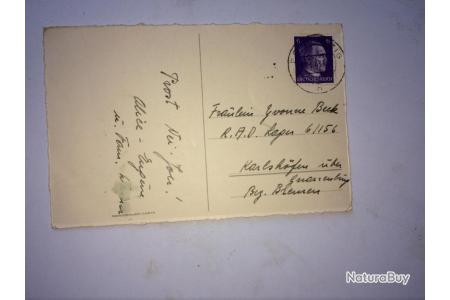 Prost Neu Jahr!
Alice - Eugène
u. Fam.
6 6
DEUTSCHES REICH
Fräulein Yvonne Beck
R.A.D. Lager 6/156
Karlshöfen über
Gnarrenburg
Bez. Bremen
NaturaBuy